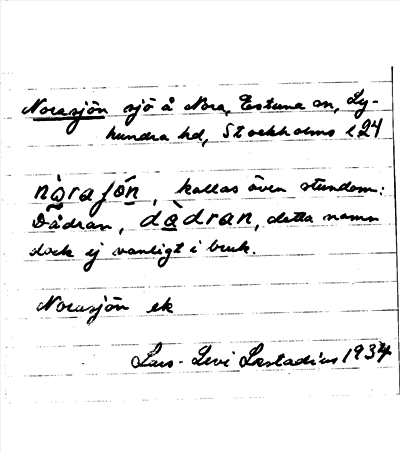 Norasjön sjö å Nora, Estuna sn, Ly-
hundra hd, Stockholms l 24
nòrafón, kallas även stundom:
Dådran, dàdran, detta namn
dock ej vanligt i bruk.
Norasjön ek
Lars-Levi Læstadius 1934